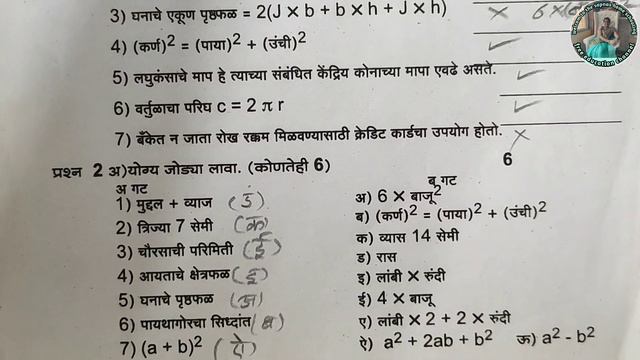 3) घनाचे एकूण पृष्ठफळ = 2(J X b + b X h + J X h) ×
4) (कर्ण)2 = (पाया)2 + (उंची)2 ✓
5) लघुकंसाचे माप हे त्याच्या संबंधित केंद्रिय कोनाच्या मापा एवढे असते. ✓
6) वर्तुळाचा परिघ c = 2 π r ✓
7) बँकेत न जाता रोख रक्कम मिळवण्यासाठी क्रेडिट कार्डचा उपयोग होतो. ×
प्रश्न 2 अ)योग्य जोड्या लावा. (कोणतेही 6) 6
अ गट ब गट
1) मुद्दल + व्याज (ड) अ) 6 X बाजू2
2) त्रिज्या 7 सेमी (क) ब) (कर्ण)2 = (पाया)2 + (उंची)2
3) चौरसाची परिमिती (ई) क) व्यास 14 सेमी
4) आयताचे क्षेत्रफळ (इ) ड) रास
5) घनाचे पृष्ठफळ (अ) इ) लांबी X रुंदी
6) पायथागोरचा सिध्दांत (ब) ई) 4 X बाजू
7) (a + b)2 (ऐ) ए) लांबी X 2 + 2 X रुंदी
ऐ) a2 + 2ab + b2 ऊ) a2 - b2